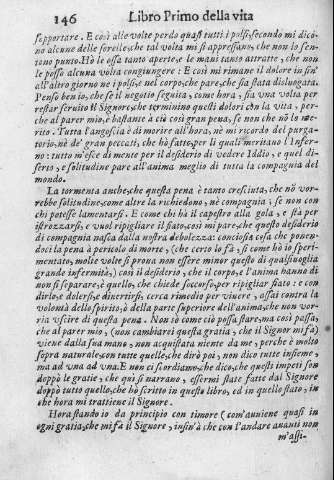 146 Libro Primo della vita
sopportare. E così alle volte perdo quasi tutti i polsi, secondo mi dicono
alcune delle sorelle, che tal volta mi si appressano, che non lo sentono
punto. Hò le ossa tanto aperte, e le mani tanto attratte, che non
le posso alcuna volta congiungere: E così mi rimane il dolore in sin'
all'altro giorno ne i polsi, e nel corpo, che pare, che sia stata disluogata.
Penso ben io, che se il negotio seguita, come hora, sia una volta per
restar servito il Signore, che terminino questi dolori con la vita, perche
al parer mio, è bastante à ciò così gran pena, se non che nò lo merito.
Tutta l'angoscia è di morire all'hora, nè mi ricordo del purgatorio,
nè de' gran peccati, che hò fatto, per li quali meritavo l'Inferno:
tutto m'esce di mente per il desiderio di vedere Iddio, e quel diserto,
e solitudine pare all'anima meglio di tutta la compagnia del
mondo.
La tormenta anche, che questa pena è tanto cresciuta, che nõ vorrebbe
solitudine, come altre la richiedono, nè compagnia, se non con
chi potesse lamentarsi. E come chi hà il capestro alla gola, e sta per
istrozzarsi, e vuol ripigliare il fiato, così mi pare, che questo desiderio
di compagnia nasca dalla nostra debolezza: conciosia cosa che ponendoci
la pena à pericolo di morte, (che certo lo fà, sì come hò io sperimentato,
molte volte si prova non essere minor questo di qualsivoglia
grande infermità,) così il desiderio, che il corpo, e l'anima hanno di
non si separare, è quello, che chiede soccorso, per ripigliar fiato: e con
dirlo, e dolersi, e divertirsi, cerca rimedio per vivere, assai contra la
volontà dello spirito, ò della parte superiore dell'anima, che non vorria
uscire di questa pena. Non sò come ciò possa stare, ma così passa,
che al parer mio, (non cambiarei questa gratia, che il Signor mi fa)
viene dalla sua mano, non acquistata niente da me, perche è molto
sopra naturale, con tutte quelle, che dirò poi, non dico tutte insieme,
ma ad una ad una. E non ci scordiamo, che dico, che questi impeti son
doppò le gratie, che quì si narrano, essermi state fatte dal Signore
doppò tutto quello, che hò scritto in questo libro, ed in quello stato, in
che hora mi trattiene il Signore.
Hora stando io da principio con timore (com'avviene quasi in
ogni gratia, che mi fà il Signore, insin'à che con l'andare avanti non
m'assi-